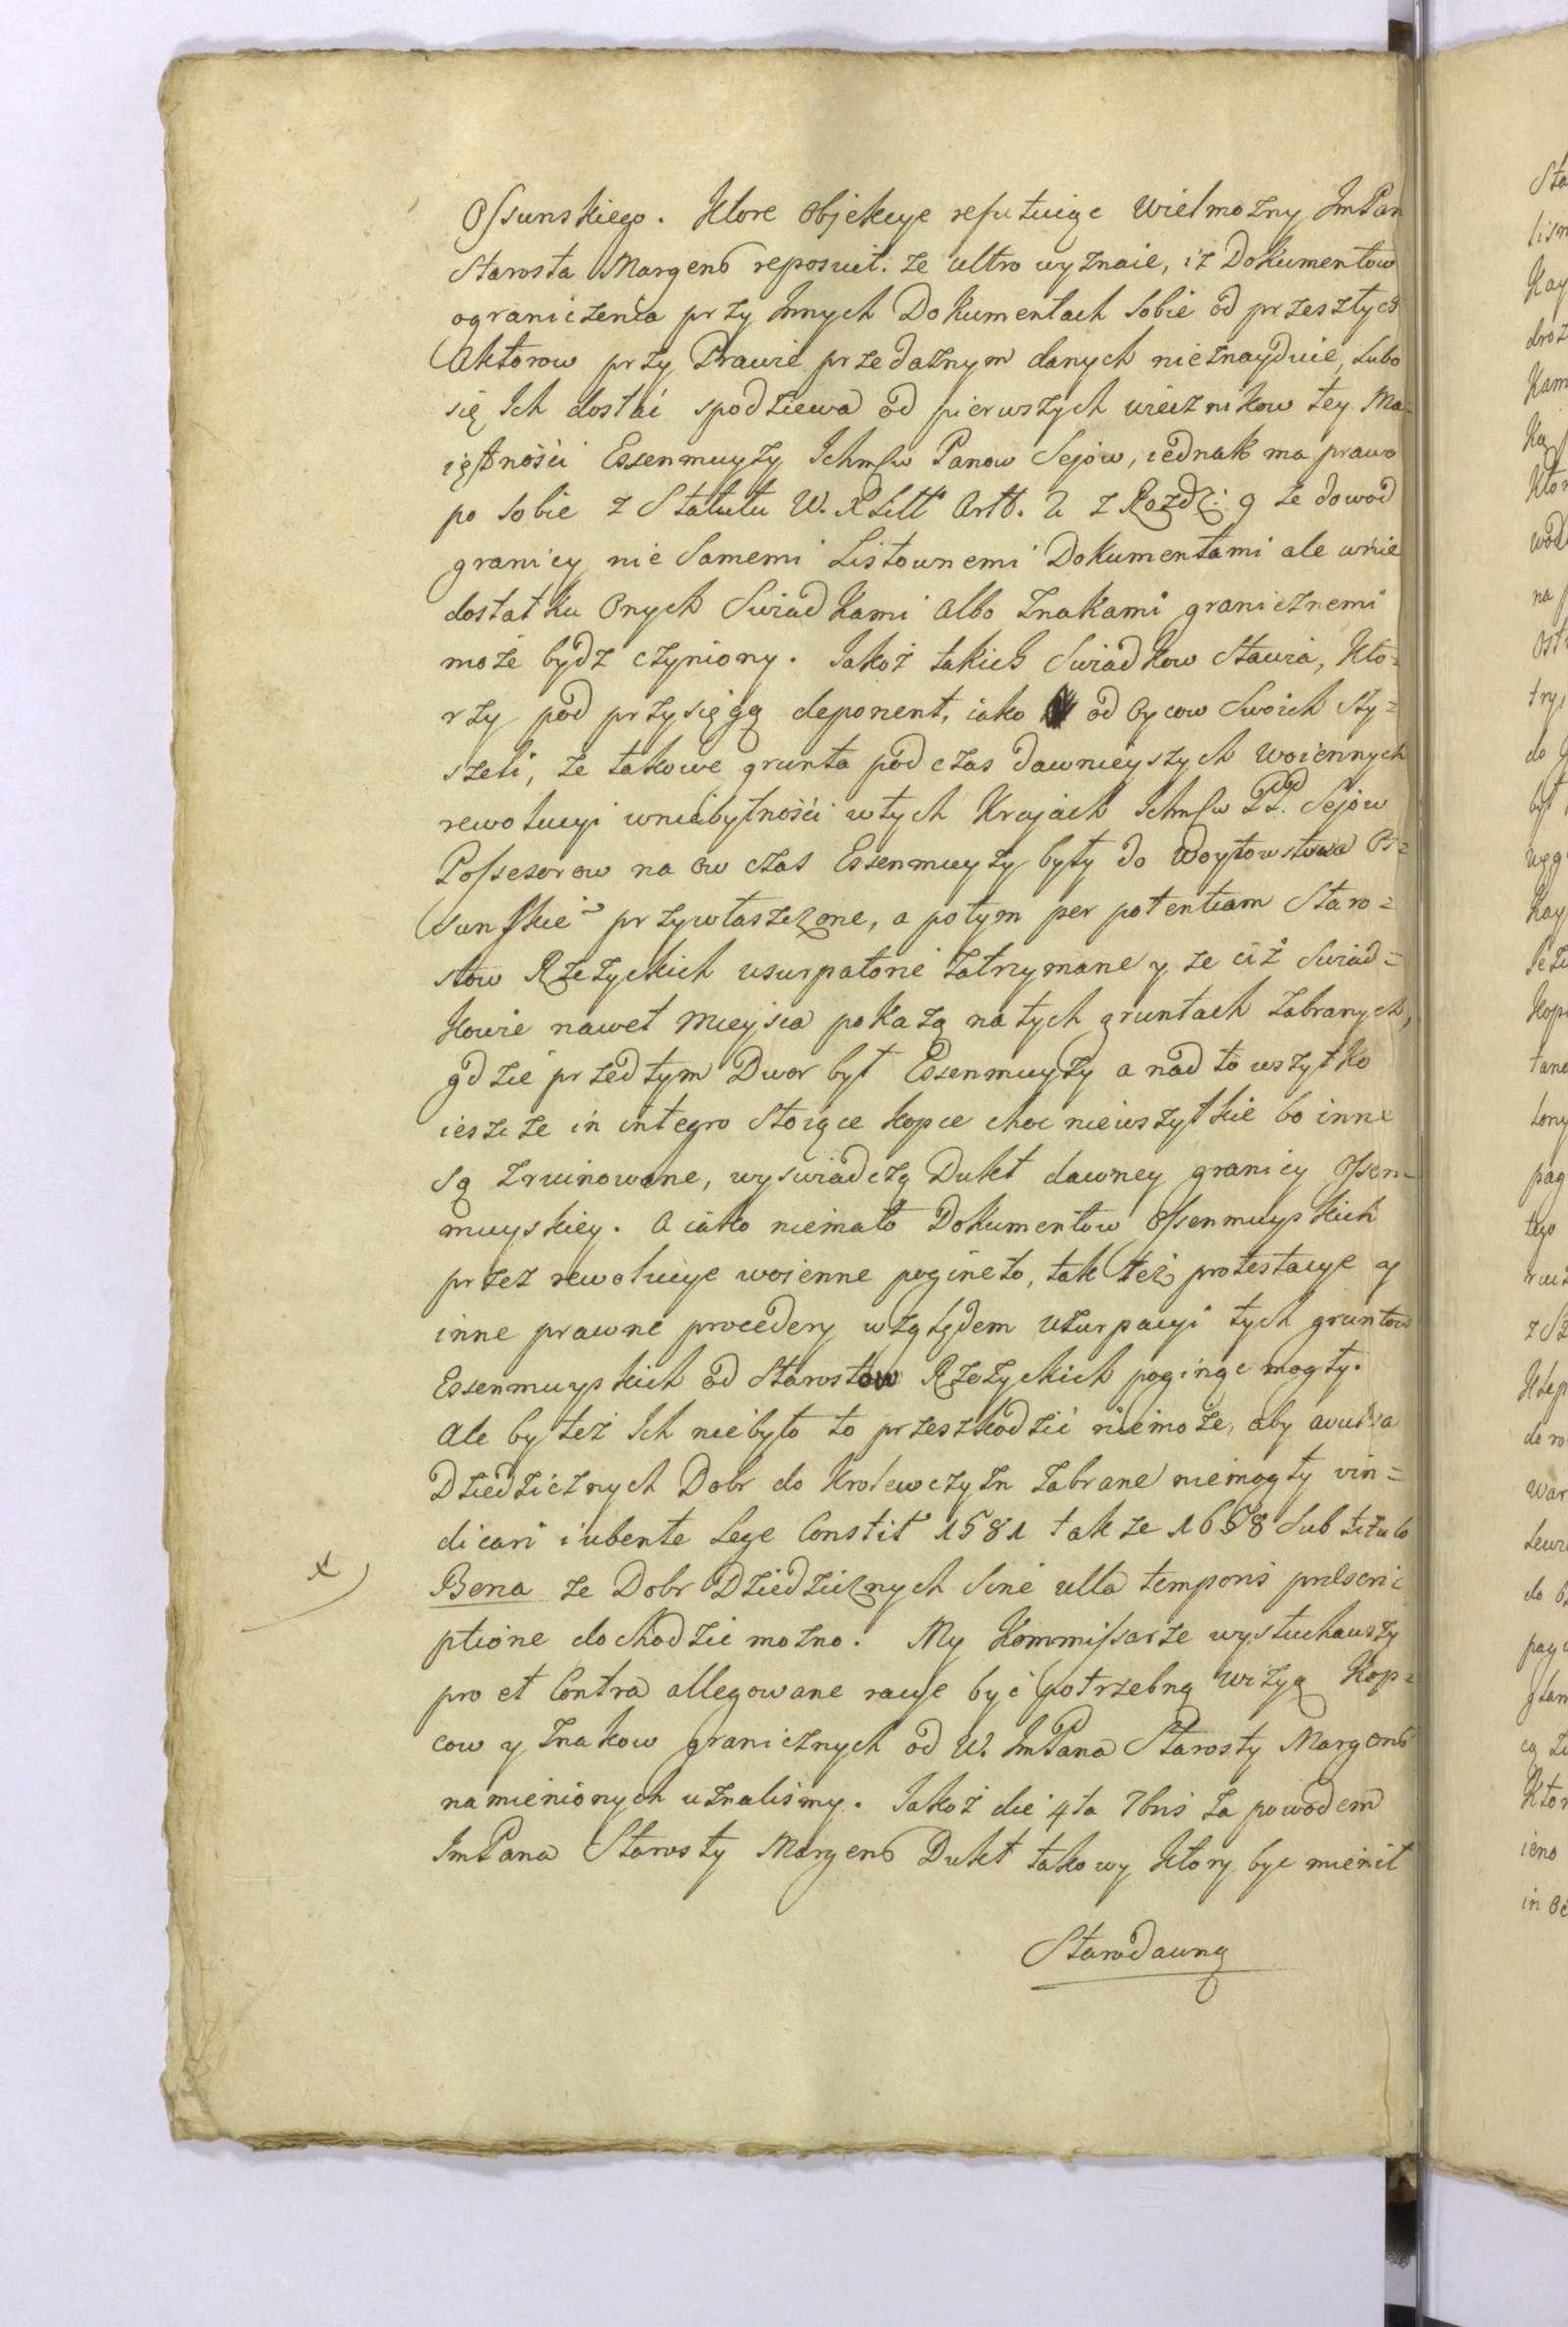 Ossunskiego. Ktore Objekcye refutuiąc Wielmozny ImPan
Starosta Margenb reposuit. ze ultro wyznaie, iz Dokumentow
ograniczenia przy Innych Dokumentach sobie od przeszłych
Aktorow przy Prawie przedaznym danych nieznayduie, Lubo
się Ich dostać spodziewa od pierwszych wiecznikow tey Ma=
iętności Essenmuyzy Ichmśw Panow Sejow, iednak ma prawo
po sobie z Statutu W. X Litt Artt. 2 z Rozdz: 9 ze dowod
granicy nie Samemi Listownemi Dokumentami ale w nie
dostatku Onych Swiadkami albo Znakami granicznemi
może bydz czyniony. Jakoż takich Swiadkow Stawia, Kto=
rzy pod przysięgą deponent, iako od Oycow Swoich Sły=
szeli, że takowe grunta podczas dawnieyszych woiennych
rewolucyi w niebytności w tych Krajach Ichmśw PP. Sejow
Possesorow na ow czas Essenmuyzy były do Woytowstwa Os=
sunskie° przywłaszczone, a potym per potentiam Staro=
stow Rzeżyckich usurpatorie zatrzymane y że ciż Swiad=
kowie nawet mieysca pokażą na tych gruntach zabranych,
gdzie przedtym Dwor był Essenmuyzy a nad to wszytko
ieszcze in integro Stoiące kopce choc niewszytkie bo inne
są zruinowane, wyswiadczą Dukt dawney granicy Essen=
muyskiey. A iako niemało Dokumentow Essenmuyskich
przez rewolucye woienne pogineło, tak też protestacye y
inne prawne procedery względem Uzurpacyi tych gruntow
Essenmuyskich od Starostow Rzeżyckich poginąc mogły.
Ale by też Ich niebyło to przeszkodzić niemoże, aby avulsa
Dziedzicznych Dobr do Krolewczyzn zabrane niemogły vin=
dicari iubente Lege Constit 1581 takze 1658 Sub titulo
Bona ze Dobr Dziedzicznych Sine ulla temporis præscri
ptione dochodzic mozno. My Kommissarze wysłuchawszy
pro et Contra allegowane racye być potrzebną wizyą Kop=
cow y Znakow granicznych od W. ImPana Starosty Margenb
namienionych uznaliśmy. Jakoż die 4ta 7bris za powodem
ImPana Starosty Margenb Dukt takowy ktory byc mienił
Starodawną